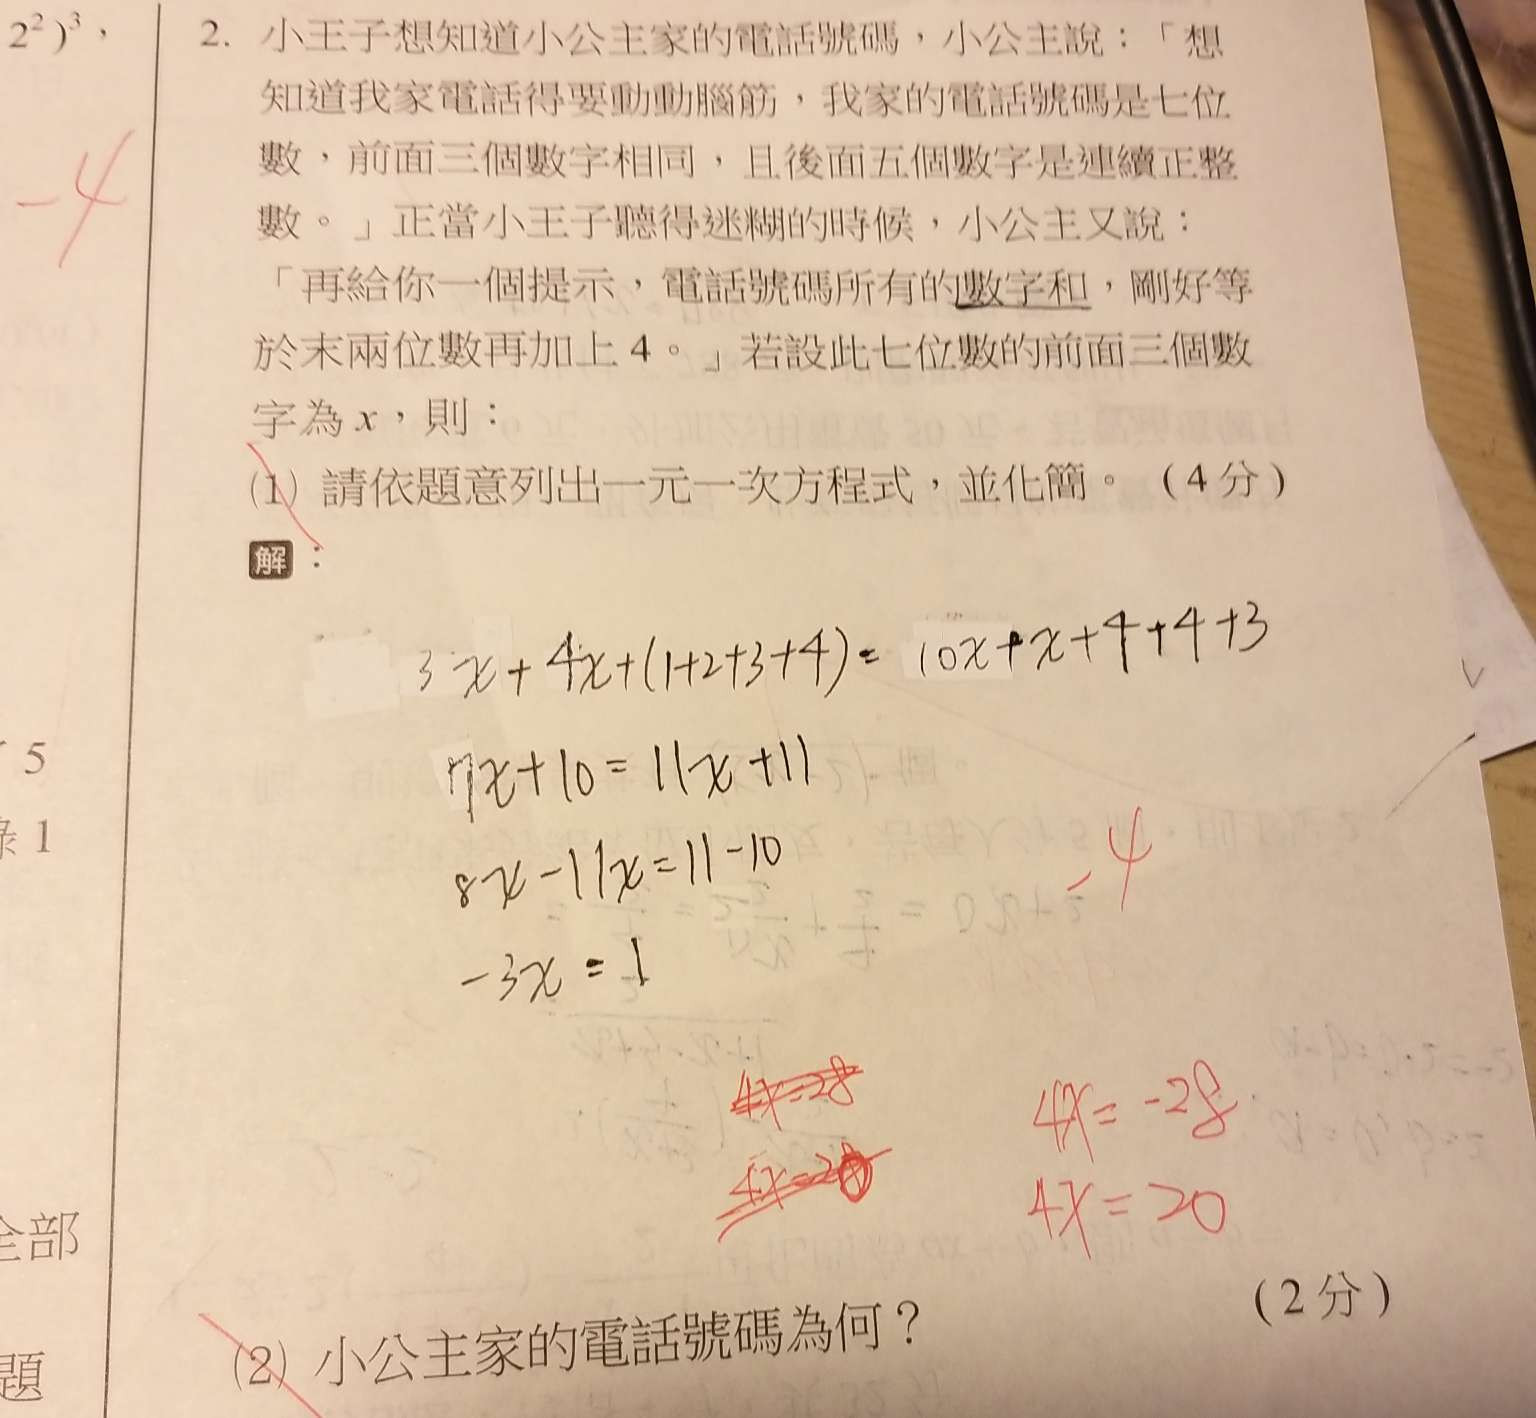 2²)³，
-4
5
錄1
全部
題
2. 小王子想知道小公主家的電話號碼，小公主說：「想
知道我家電話得要動動腦筋，我家的電話號碼是七位
數，前面三個數字相同，且後面五個數字是連續正整
數。」正當小王子聽得迷糊的時候，小公主又說：
「再給你一個提示，電話號碼所有的數字和，剛好等
於末兩位數再加上4。」若設此七位數的前面三個數
字為x，則：
(1) 請依題意列出一元一次方程式，並化簡。（4分）
解：
3x+4x+(1+2+3+4)=10x+x+4+4+3
7x+10=11x+11
8x-11x=11-10
-3x=1
-4
4x=-28
4x=20
（2分）
(2) 小公主家的電話號碼為何？